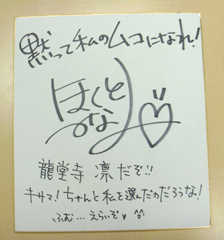 黙って私のムコになれ!
ほくと
かな
龍堂寺 凛だぞ!!
キサマ!ちゃんと私を選んだのだろうな!
ふむ…えらいぞ♥